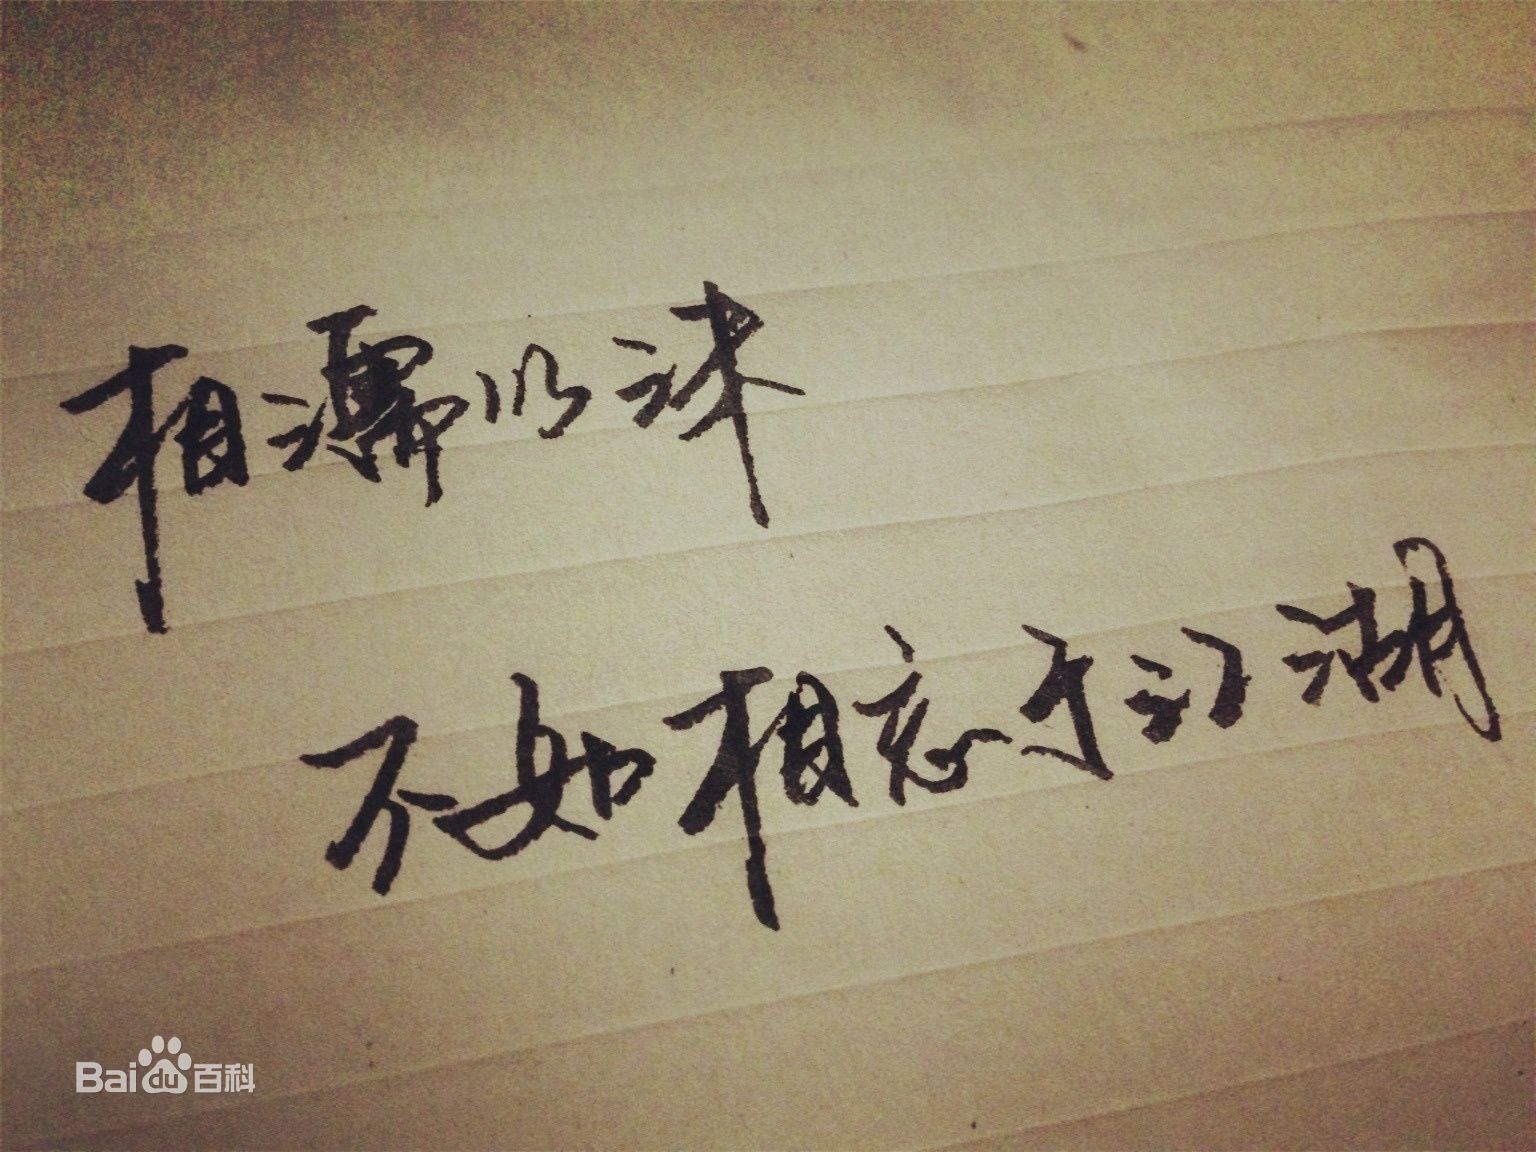 相濡以沫
不如相忘于江湖
Bai du 百科